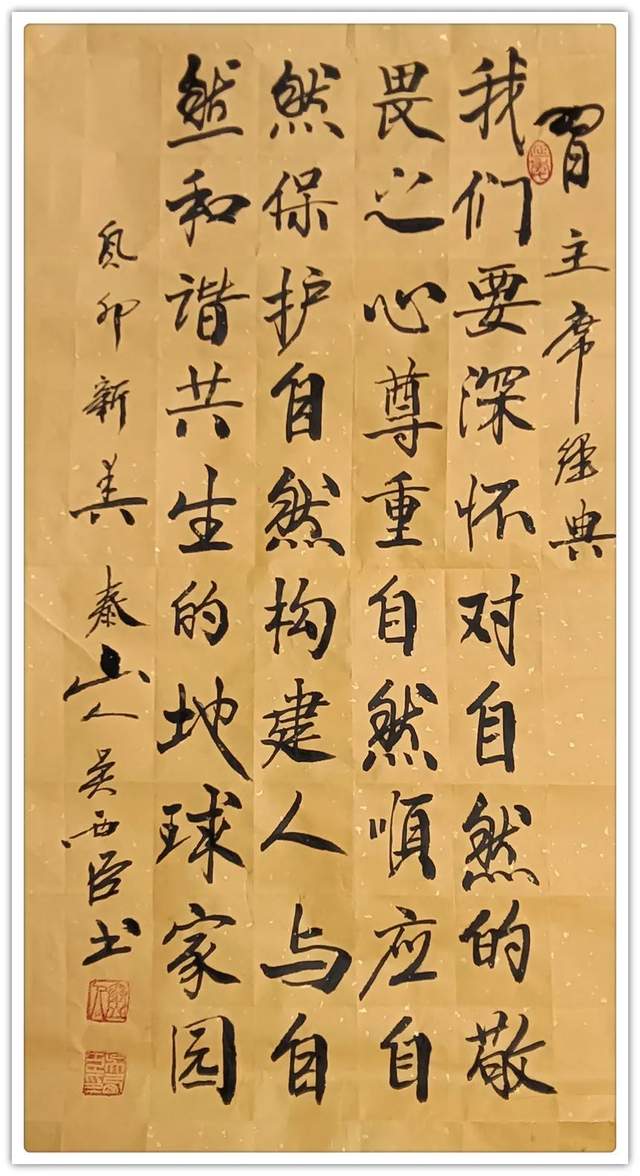 習主席经典
我们要深怀对自然的敬
畏之心尊重自然順应自
然保护自然构建人与自
然和谐共生的地球家园
卯新美泰山人吴西臣书